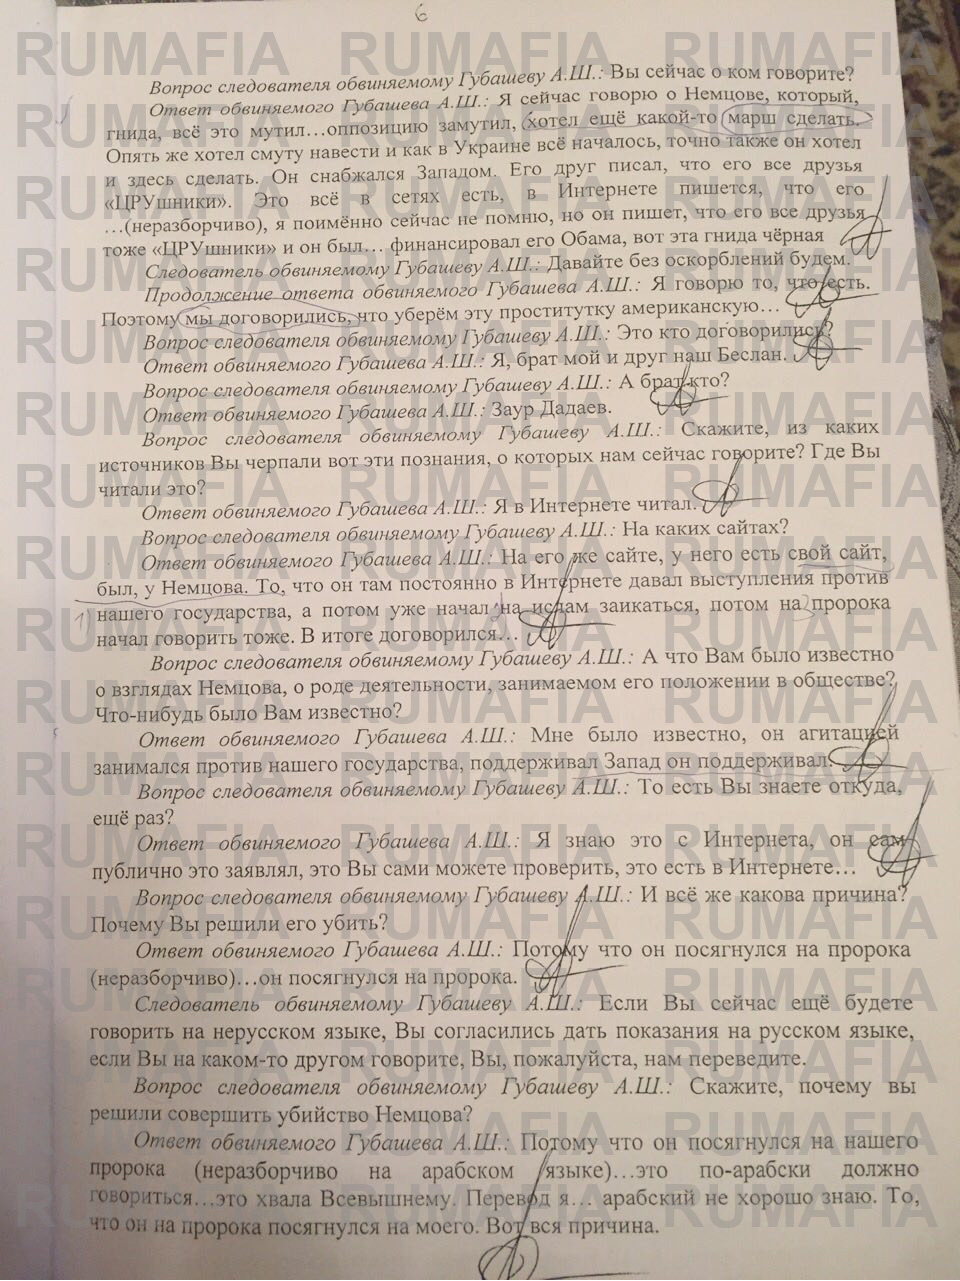 6
Вопрос следователя обвиняемому Губашеву А.Ш.: Вы сейчас о ком говорите?
Ответ обвиняемого Губашева А.Ш.: Я сейчас говорю о Немцове, который,
гнида, всё это мутил…оппозицию замутил, хотел ещё какой-то марш сделать.
Опять же хотел смуту навести и как в Украине всё началось, точно также он хотел
и здесь сделать. Он снабжался Западом. Его друг писал, что его все друзья
«ЦРУшники». Это всё в сетях есть, в Интернете пишется, что его
…(неразборчиво), я поимённо сейчас не помню, но он пишет, что его все друзья
тоже «ЦРУшники» и он был… финансировал его Обама, вот эта гнида чёрная
Следователь обвиняемому Губашеву А.Ш.: Давайте без оскорблений будем.
Продолжение ответа обвиняемого Губашева А.Ш.: Я говорю то, что есть.
Поэтому мы договорились, что уберём эту проститутку американскую…
Вопрос следователя обвиняемому Губашеву А.Ш.: Это кто договорились?
Ответ обвиняемого Губашева А.Ш.: Я, брат мой и друг наш Беслан.
Вопрос следователя обвиняемому Губашеву А.Ш.: А брат кто?
Ответ обвиняемого Губашева А.Ш.: Заур Дадаев.
Вопрос следователя обвиняемому Губашеву А.Ш.: Скажите, из каких
источников Вы черпали вот эти познания, о которых нам сейчас говорите? Где Вы
читали это?
Ответ обвиняемого Губашева А.Ш.: Я в Интернете читал.
Вопрос следователя обвиняемому Губашеву А.Ш.: На каких сайтах?
Ответ обвиняемого Губашева А.Ш.: На его же сайте, у него есть свой сайт,
был, у Немцова. То, что он там постоянно в Интернете давал выступления против
нашего государства, а потом уже начал на ислам заикаться, потом на пророка
начал говорить тоже. В итоге договорился…
Вопрос следователя обвиняемому Губашеву А.Ш.: А что Вам было известно
о взглядах Немцова, о роде деятельности, занимаемом его положении в обществе?
Что-нибудь было Вам известно?
Ответ обвиняемого Губашева А.Ш.: Мне было известно, он агитацией
занимался против нашего государства, поддерживал Запад он поддерживал.
Вопрос следователя обвиняемому Губашеву А.Ш.: То есть Вы знаете откуда,
ещё раз?
Ответ обвиняемого Губашева А.Ш.: Я знаю это с Интернета, он сам
публично это заявлял, это Вы сами можете проверить, это есть в Интернете…
Вопрос следователя обвиняемому Губашеву А.Ш.: И всё же какова причина?
Почему Вы решили его убить?
Ответ обвиняемого Губашева А.Ш.: Потому что он посягнулся на пророка
(неразборчиво)…он посягнулся на пророка.
Следователь обвиняемому Губашеву А.Ш.: Если Вы сейчас ещё будете
говорить на нерусском языке, Вы согласились дать показания на русском языке,
если Вы на каком-то другом говорите, Вы, пожалуйста, нам переведите.
Вопрос следователя обвиняемому Губашеву А.Ш.: Скажите, почему вы
решили совершить убийство Немцова?
Ответ обвиняемого Губашева А.Ш.: Потому что он посягнулся на нашего
пророка (неразборчиво на арабском языке)…это по-арабски должно
говориться…это хвала Всевышнему. Перевод я… арабский не хорошо знаю. То,
что он на пророка посягнулся на моего. Вот вся причина.